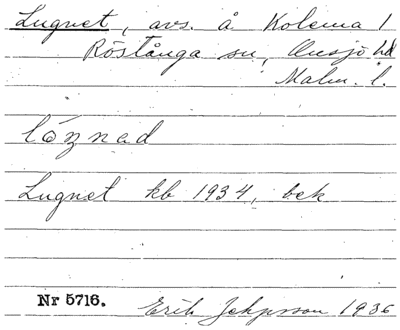 Lugnet, avs. å Kolema 1
Röstånga sn, Onsjö hd
Malm. l.
Lugnet kb 1934, bek
Nr 5716.
Erik 1936